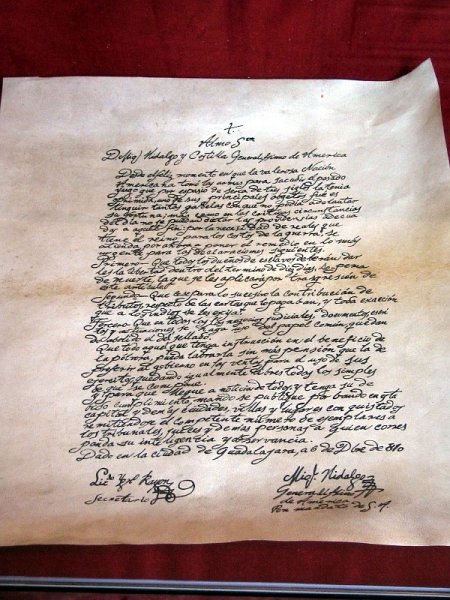 Almo Sor
D. Migl Hidalgo y Costilla Generalissimo de America
Desde el feliz momento en que la valerosa Nación
Americana ha tomó las armas para sacudir el pesado
yugo que por espacio de cerca de tres siglos la tenia
oprimida, uno de sus principales objetos fué es
con que no podía adelantar
su fortuna; más como en las críticas circunstancias
del día no se puedan dictar las providencias
a aquel fin, por la necesidad de reales que
tiene el reino para los costos de la guerra, se
a poner el remedio en lo más
urgente para las declaraciones siguientes.
Primero — Que todos los dueños de esclavos deberán dar
les la libertad dentro del término de diez días, so pena
de muerte, que se les aplicará por transgresión de
este artículo
Segundo — Que cese para lo sucesivo la contribución de
tributos, respecto de las castas que lo pagaban, y toda exacción
que a los indios se les exija
Tercero. Que en todos los negocios judiciales, documentos, escri
uso del papel común, quedan
del sellado
Que todo aquel que tenga instrucción en el beneficio de
la pólvora, pueda labrarla sin más pensión que la de
preferir al gobierno en las ventas para el uso de sus
ejercitos, quedando igualmente libres todos los simples
de que se compone
Y para que llegue a noticia de todos y tenga su de
bido cumplimiento, mando se publique por bando en esta
capital y demás ciudades, villas y lugares conquistados
remitiendose el competente número de ejemplares a
los tribunales, jueces y demás personas a quien corres
ponda su inteligencia y observancia.
Dado en la ciudad de Guadalajara, a 6 de Dbre de 810
Lic. Rayon
Secretario
Migl. Hidalgo
Generalisimo
de America
Por mandato de S. A.